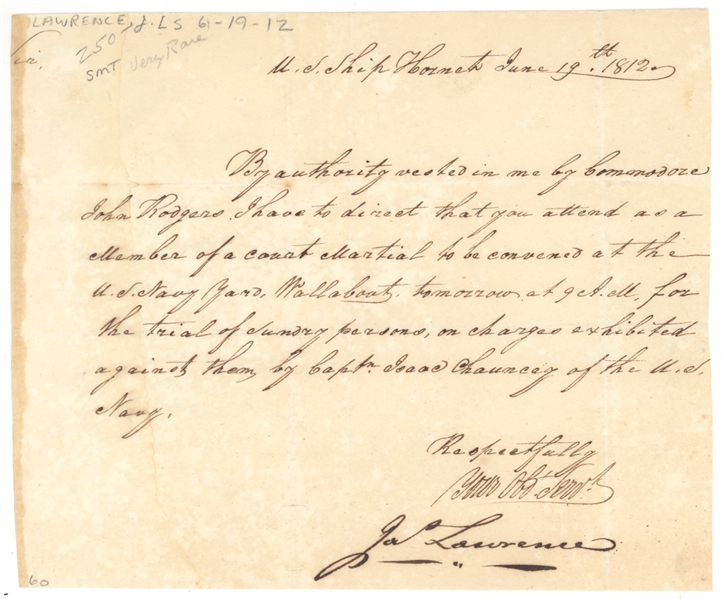 LAWRENCE, J. LS 6-19-12
250
SMT Very Rare
Sir,
U. S. Ship Hornet June 19th. 1812.
By authority vested in me by Commodore
John Rodgers, I have to direct that you attend as a
Member of a court Martial to be convened at the
U. S. Navy Yard, Wallabout, tomorrow at 9 A.M, for
the trial of sundry persons, on charges exhibited
against them, by Captn. Isaac Chauncey of the U. S.
Navy.
Respectfully
Your Obdt Servt.
Jas Lawrence
60